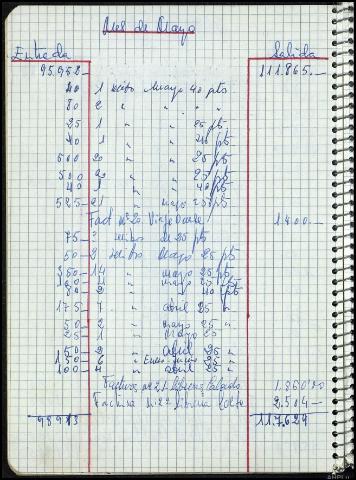 Mes de Mayo
Entrada Salida
95.958 111.865.—
40 1 recibo Mayo 40 pts
80 2 " " " "
25 1 " " 25 pts
40 1 " " 40 pts
500 20 " " 25 pts
500 20 " " 25 pts
40 1 " " 40 pts
525 21 " mayo 25 pts
Fact nº 20 Viaje 1400.—
75 3 recibos de 25 pts
50 2 recibos Mayo 25 pts
350 14 " mayo 25 pts
100 4 " mayo 25 pts
80 2 " " 40 pts
175 7 " abril 25 "
50 2 " mayo 25 "
25 1 " Mayo 25
50 2 " Abril 25 "
150 6 " Enero Junio 25 "
100 4 " abril 25 "
Factura nº 21 1.360'20
Factura nº 22 libreria 2.504—
98913 117.629